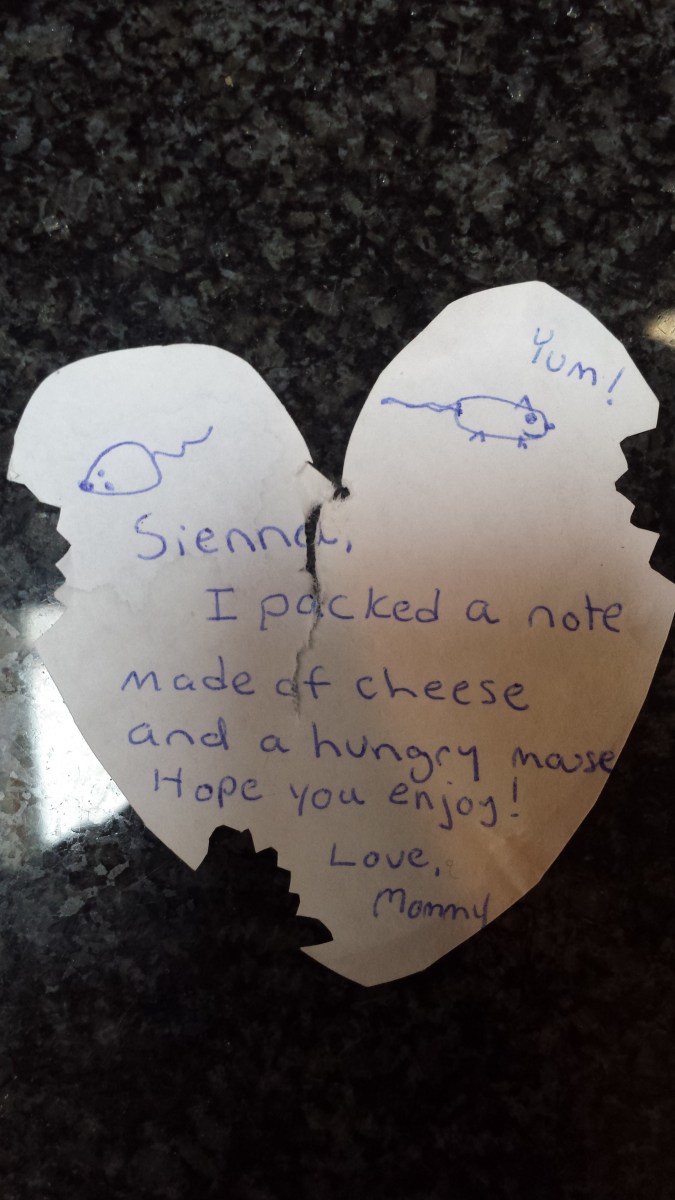 Yum!
Sienna,
I packed a note
made of cheese
and a hungry mouse
Hope you enjoy!
Love,
Mommy